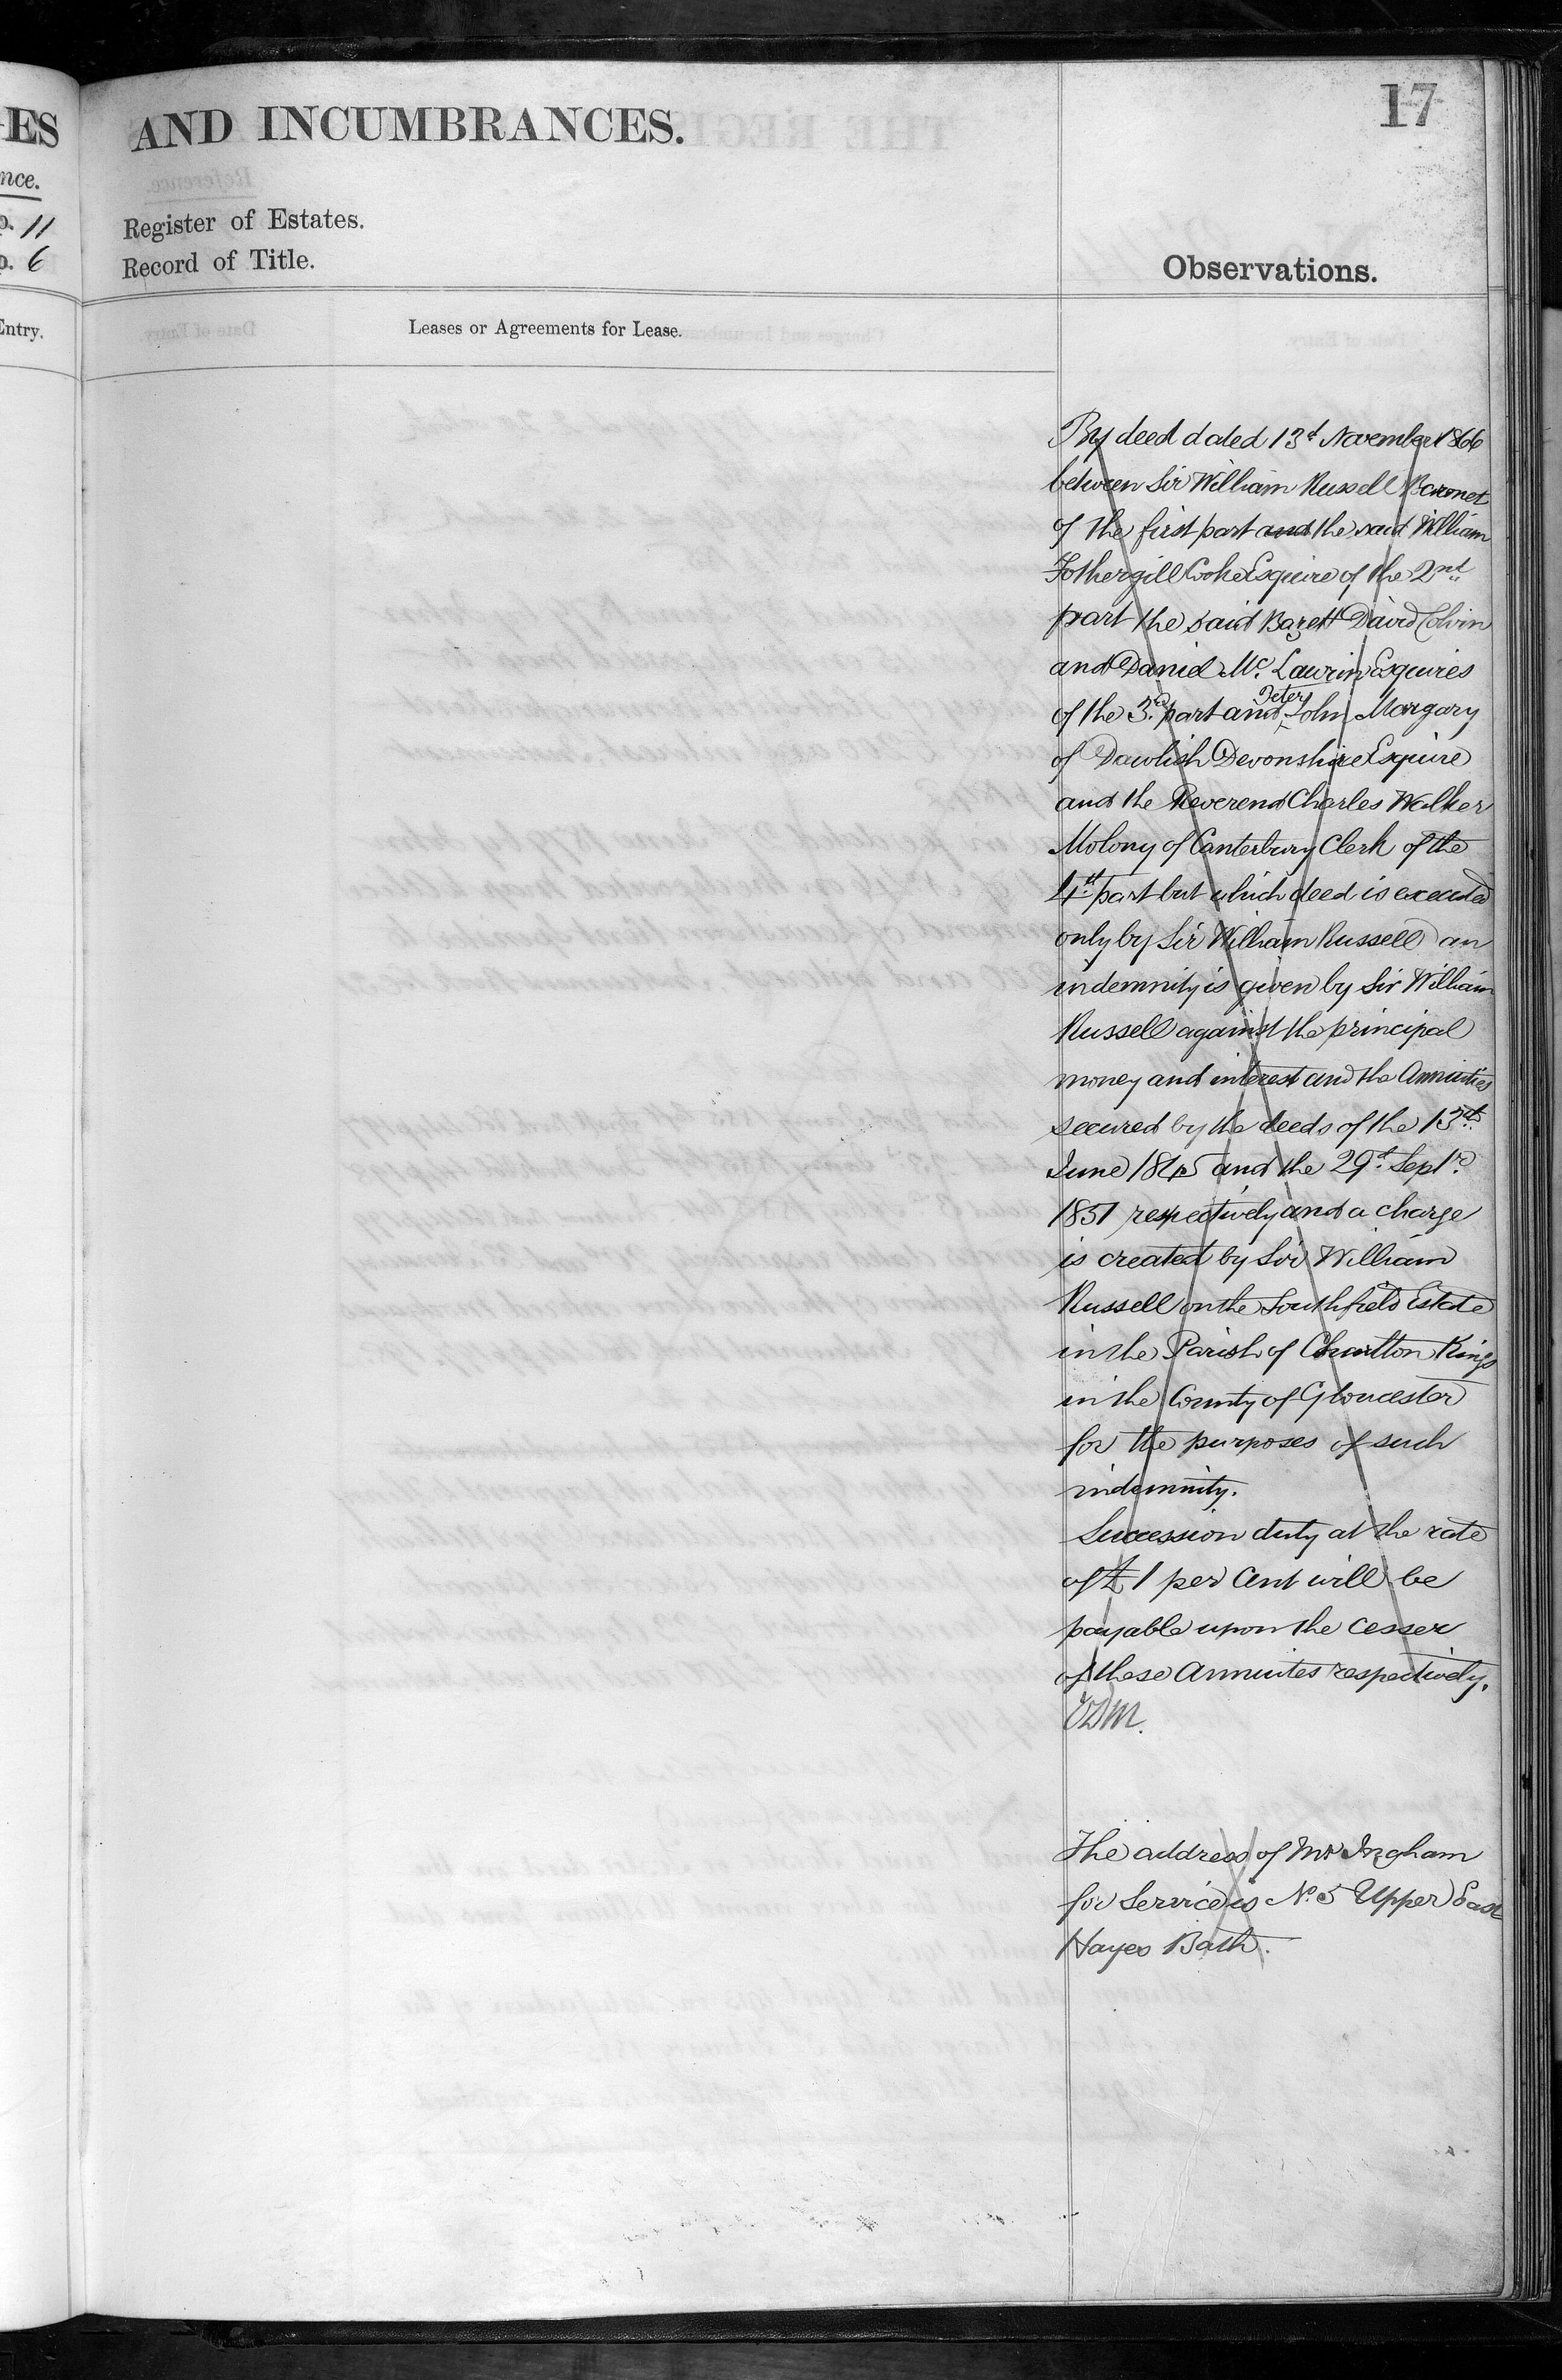 ES
nce.
p. 11
p. 6
Entry.
AND INCUMBRANCES.
17
Register of Estates.
Record of Title.
Observations.
Leases or Agreements for Lease.
By deed dated 13th November 1866
between Sir William Russell Baronet
of the first part and the said William
Fothergill Cooke Esquire of the 2nd
part the said Bazett David Colvin
and Daniel Mc. Laurin Esquires
of the 3rd part and Peter John Margary
of Dawlish Devonshire Esquire
and the Reverend Charles Walker
Molony of Canterbury Clerk of the
4th part but which deed is executed
only by Sir William Russell an
indemnity is given by Sir William
Russell against the principal
money and interest and the Annuities
secured by the deeds of the 13th
June 1845 and the 29th Septr.
1851 respectively and a charge
is created by Sir William
Russell on the Southfield Estate
in the Parish of Charlton Kings
in the County of Gloucester
for the purposes of such
indemnity.
Succession duty at the rate
of £1 per Cent will be
payable upon the cesser
of these Annuites respectively.
The address of Mr Ingham
for Service is No. 5 Upper East
Hayes Bath.